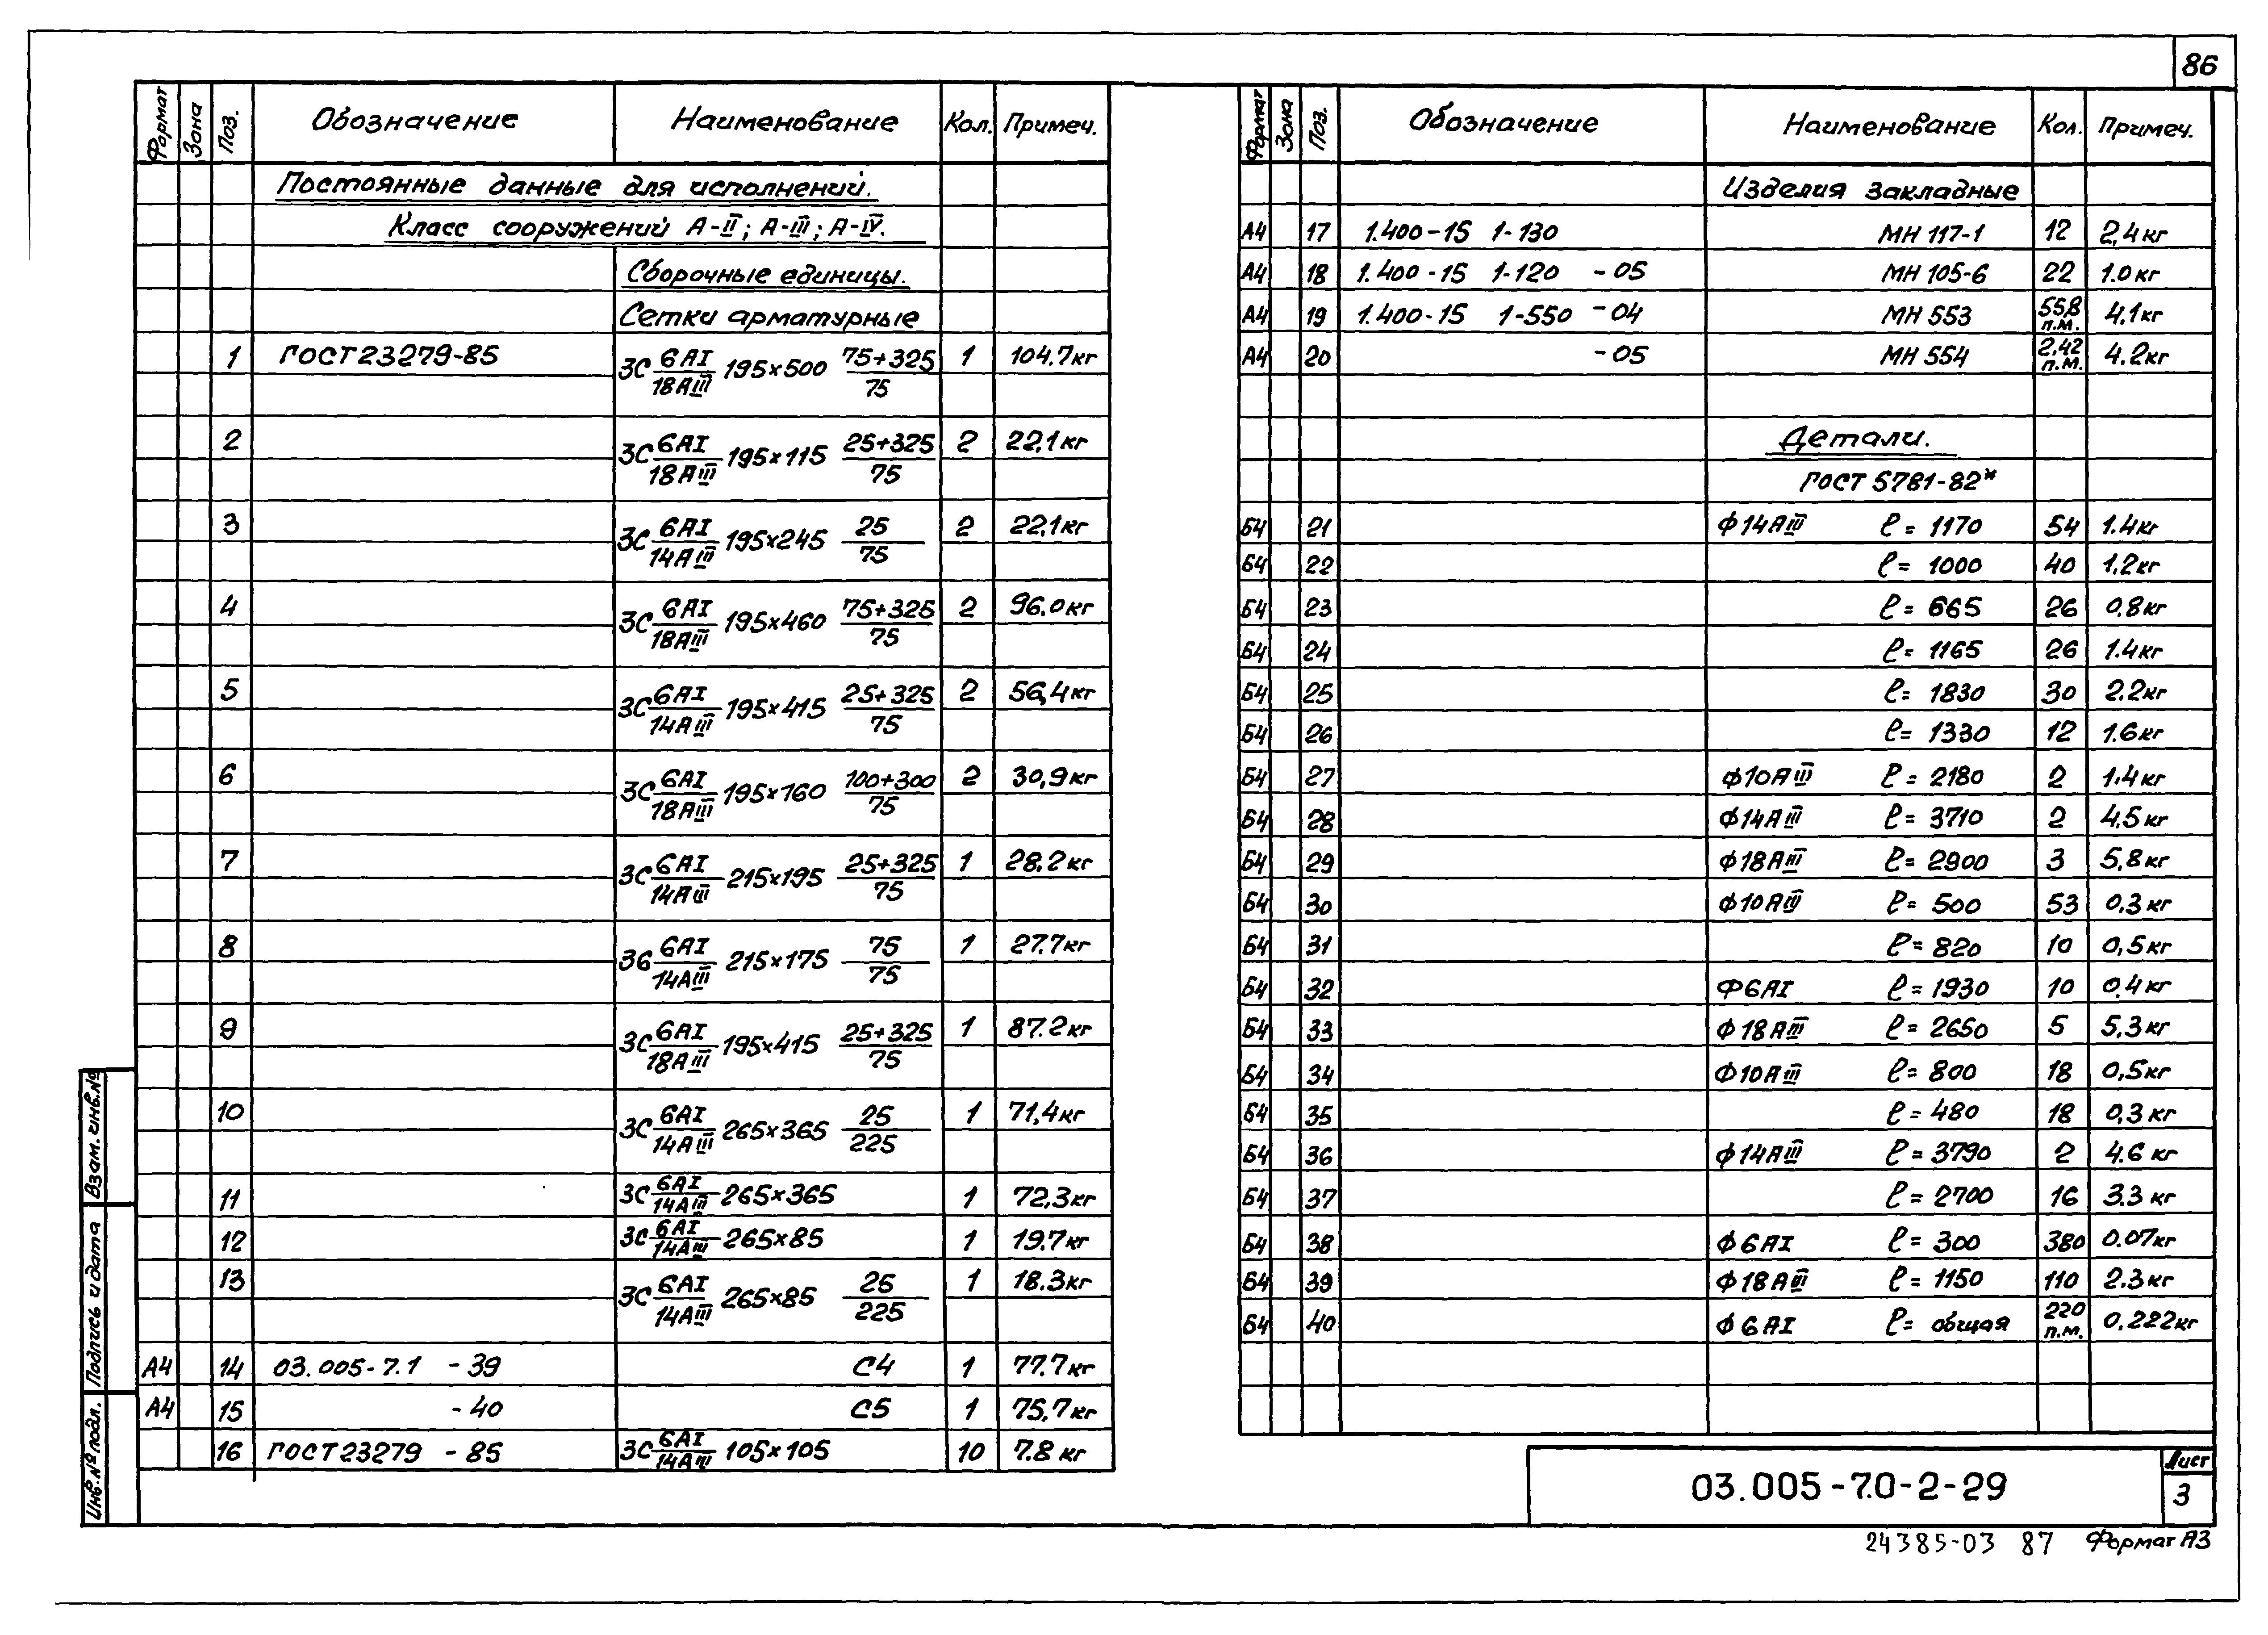 86
Формат Зона Поз. Обозначение Наименование Кол. Примеч.
Постоянные данные для исполнений.
Класс сооружений А-II; А-III; А-IV.
Сборочные единицы.
Сетки арматурные
1 ГОСТ 23279-85 3С 6АI/18АIII 195×500 75+325/75 1 104.7кг
2 3С 6АI/18АIII 195×115 25+325/75 2 22,1кг
3 3С 6АI/14АIII 195×245 25/75 2 22,1кг
4 3С 6АI/18АIII 195×460 75+325/75 2 96.0кг
5 3С 6АI/14АIII 195×415 25+325/75 2 56,4кг
6 3С 6АI/18АIII 195×160 100+300/75 2 30,9кг
7 3С 6АI/14АIII 215×195 25+325/75 1 28.2кг
8 3б 6АI/14АIII 215×175 75/75 1 27.7кг
9 3С 6АI/18АIII 195×415 25+325/75 1 87.2кг
10 3С 6АI/14АIII 265×365 25/225 1 71,4кг
11 3С 6АI/14АIII 265×365 1 72,3кг
12 3С 6АI/14АIII 265×85 1 19.7кг
13 3С 6АI/14АIII 265×85 25/225 1 18.3кг
А4 14 03.005-7.1 -39 С4 1 77.7кг
А4 15 -40 С5 1 75,7кг
16 ГОСТ 23279 -85 3С 6АI/14АIII 105×105 10 7.8 кг
Формат Зона Поз. Обозначение Наименование Кол. Примеч.
Изделия закладные
А4 17 1.400-15 1-130 МН 117-1 12 2,4кг
А4 18 1.400-15 1-120 -05 МН 105-6 22 1.0кг
А4 19 1.400-15 1-550 -04 МН 553 55,8 п.м. 4.1кг
А4 20 -05 МН 554 2,42 п.м. 4.2кг
Детали.
ГОСТ 5781-82*
Б4 21 Ф14АIII ℓ= 1170 54 1.4кг
Б4 22 ℓ= 1000 40 1,2кг
Б4 23 ℓ= 665 26 0.8кг
Б4 24 ℓ= 1165 26 1.4кг
Б4 25 ℓ= 1830 30 2.2кг
Б4 26 ℓ= 1330 12 1.6кг
Б4 27 Ф10АIII ℓ= 2180 2 1,4кг
Б4 28 Ф14АIII ℓ= 3710 2 4,5кг
Б4 29 Ф18АIII ℓ= 2900 3 5,8кг
Б4 30 Ф10АIII ℓ= 500 53 0,3кг
Б4 31 ℓ= 820 10 0,5кг
Б4 32 Ф6АI ℓ= 1930 10 0.4кг
Б4 33 Ф18АIII ℓ= 2650 5 5,3кг
Б4 34 Ф10АIII ℓ= 800 18 0,5кг
Б4 35 ℓ= 480 18 0,3 кг
Б4 36 Ф14АIII ℓ= 3790 2 4.6 кг
Б4 37 ℓ= 2700 16 3.3 кг
Б4 38 Ф6АI ℓ= 300 380 0.07кг
Б4 39 Ф18АIII ℓ= 1150 110 2.3кг
Б4 40 Ф6АI ℓ= общая 220 п.м. 0.222кг
Взам. инв.№
Подпись и дата
Инв.№ подл.
03.005-7.0-2-29
Лист
3
24385-03 87 Формат А3